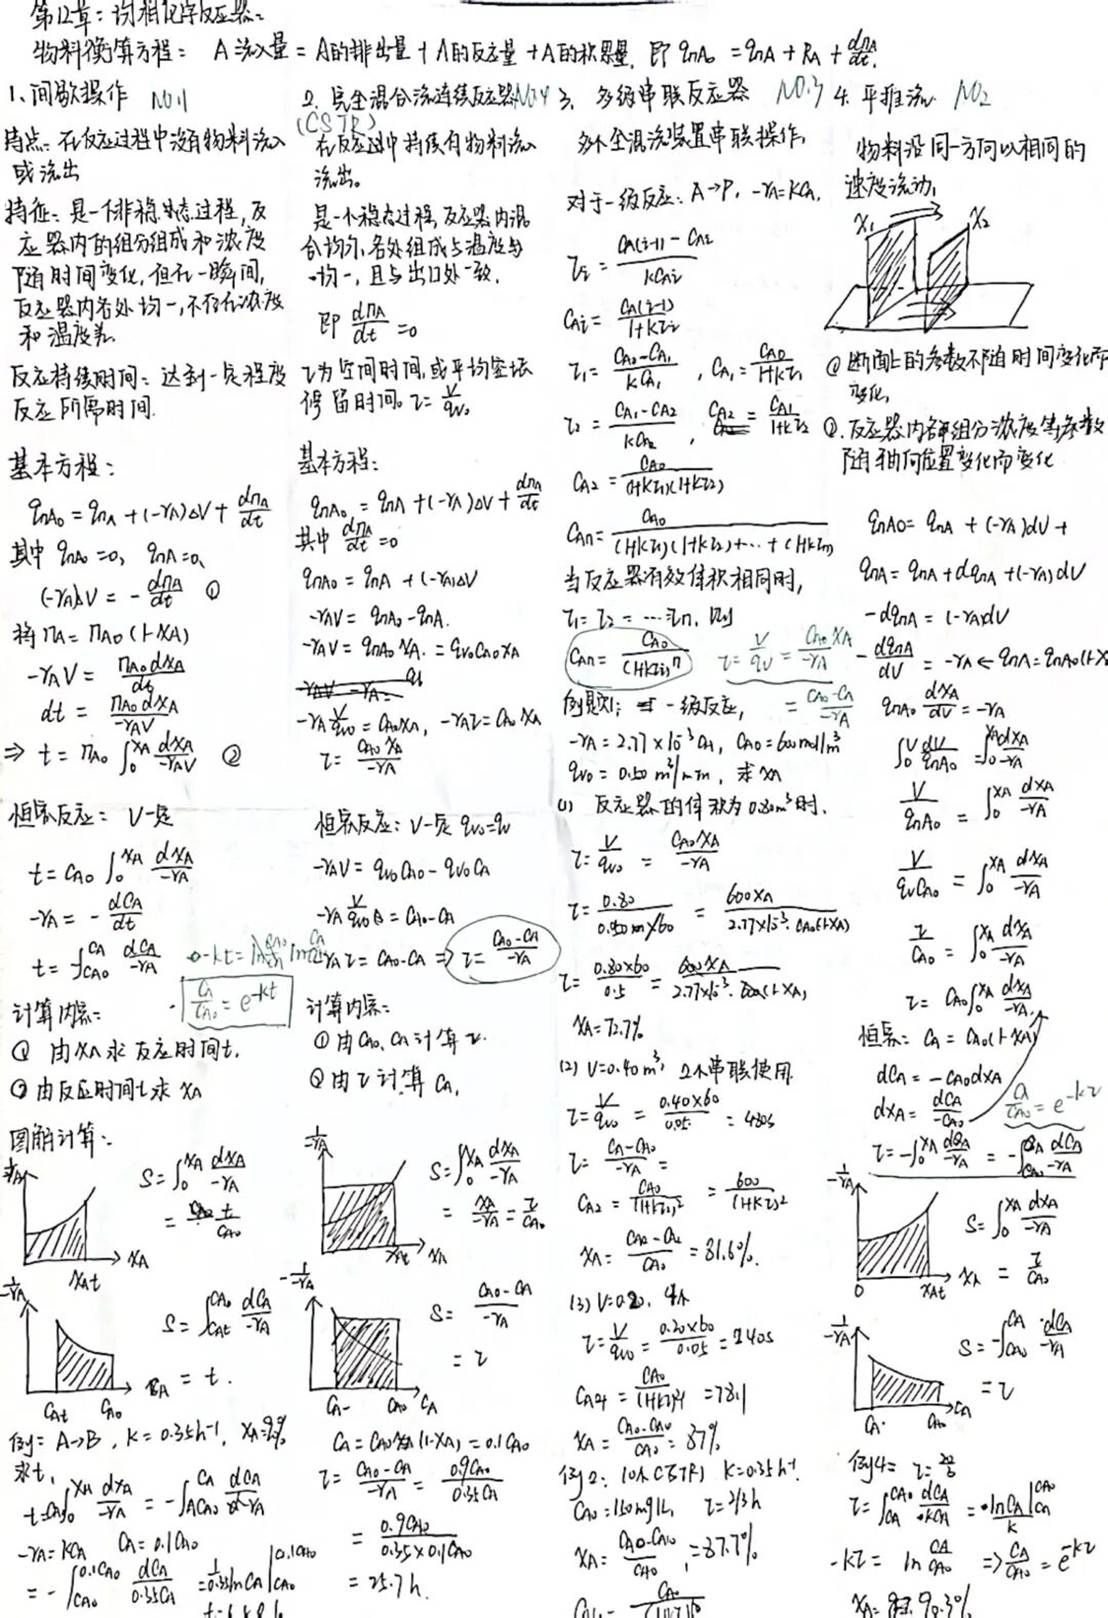 第12章：均相化学反应器：
物料衡算方程： A流入量 = A的排出量 + A的反应量 + A的积累量, 即 qnA0 = qnA + RA + dnA/dt.
1、间歇操作 NO.1
特点：在反应过程中没有物料流入
或流出
特征：是一个非稳态过程，反
应器内的组分组成和浓度
随时间变化，但在一瞬间，
反应器内各处均一，不存在浓度
和温度差.
反应持续时间：达到一定程度
反应所需时间.
基本方程：
qnA0 = qnA + (-rA)ΔV + dnA/dt
其中 qnA0 = 0, qnA = 0,
(-rA)ΔV = - dnA/dt ①
将 nA = nA0 (1-XA)
-rAV = nA0dxA/dt
dt = nA0dxA/-rAV
⇒ t = nA0 ∫0^XA dxA/-rAV ②
恒容反应： V一定
t = CA0 ∫0^XA dXA/-rA
-rA = - dCA/dt
t = -∫CA0^CA dCA/-rA
CA/CA0 = e^-kt
计算内容：
① 由XA求反应时间t.
② 由反应时间t求 XA
图解计算：
S = ∫0^XA dXA/-rA
= t/CA0
XAt XA
S = ∫CAt^CA0 dCA/-rA
= t.
CAt CA0
例： A→B, K = 0.35h^-1,
求t,
-rA = KCA CA = 0.1CA0
= -∫CA0^0.1CA0 dCA/0.35CA
2. 完全混合流连续反应器 NO.4
(CSTR)
在反应过中持续有物料流入
流出。
是一个稳态过程，反应器内混
合均匀，各处组成与温度
均一，且与出口处一致.
即 dnA/dt = 0
τ为空间时间，或平均空塔
停留时间。 τ = V/qv0
基本方程：
qnA0 = qnA + (-rA)ΔV + dnA/dt
其中 dnA/dt = 0
qnA0 = qnA + (-rA)ΔV
-rAV = qnA0 - qnA.
-rAV = qnA0XA. = qv0CA0XA
-rA V/qv0 = CA0XA, -rAτ = CA0XA
τ = CA0XA/-rA
恒容反应： V一定 qv0 = qv
-rAV = qv0CA0 - qv0CA
-rAτ = CA0 - CA ⇒ τ = CA0 - CA/-rA
计算内容：
① 由CA0, CA计算τ.
② 由τ计算 CA,
S = ∫0^XA dXA/-rA
= XA/-rA = τ/CA0
XAt XA
S = CA0 - CA/-rA
= τ
CA CA0 CA
CA = CA0(1-XA) = 0.1CA0
τ = CA0 - CA/-rA = 0.9CA0/0.35CA
= 0.9CA0/0.35×0.1CA0
= 25.7h.
3. 多级串联反应器 NO.3
多个全混流装置串联操作,
对于一级反应： A→P, -rA = KCA.
τi = CA(i-1) - CAi/kCAi
CAi = CA(i-1)/1+Kτi
τ1 = CA0-CA1/KCA1, CA1 = CA0/1+Kτ1
τ2 = CA1-CA2/KCA2, CA2 = CA1/1+Kτ2
CA2 = CA0/(1+Kτ1)(1+Kτ2)
CAn = CA0/(1+Kτ1)(1+Kτ2)+…+(1+Kτn)
当反应器有效体积相同时,
τ1 = τ2 = …τn, 则
CAn = CA0/(1+Kτi)^n τ = V/qv = CA0XA/-rA
= CA0-CA/-rA
例题1： 一级反应,
-rA = 2.77×10^-3 CA, CA0 = 600mol/m³
qv0 = 0.50 m³/min, 求XA
(1) 反应器的体积为0.80m³时.
τ = V/qv0 = CA0XA/-rA
τ = 0.80/0.50m/60 = 600XA/2.77×10^-3·CA0(1-XA)
τ = 0.80×60/0.5 = 600XA/2.77×10^-3·600(1-XA)
(2) V=0.40m³, 2个串联使用
τ = V/qv0 = 0.40×60/0.05 = 480s
τ = CA-CA0/-rA =
CA2 = CA0/(1+Kτi)² = 600/(1+Kτ)²
XA = CA0-CA/CA0 = 81.6%.
(3) V=0.20, 4个
τ = V/qv0 = 0.20×60/0.05 = 240s
CA4 = CA0/(1+Kτ)^4 = 78.1
XA = CA0-CA0/CA0 = 87%
例2： 10个CSTR K=0.35h^-1
CA0 = 150mg/L τ = 2/3h
4. 平推流 NO.2
物料沿同一方向以相同的
速度流动,
X1 X2
① 断面上的参数不随时间变化而
变化,
②. 反应器内各组分浓度等参数
随轴向位置变化而变化
qnA0 = qnA + (-rA)dV +
qnA = qnA + dqnA + (-rA)dV
-dqnA = (-rA)dV
-dqnA/dV = -rA ← qnA = qnA0(1-X
qnA0 dXA/dV = -rA
∫0^V dV/qnA0 = ∫0^XA dXA/-rA
V/qnA0 = ∫0^XA dXA/-rA
V/qvCA0 = ∫0^XA dXA/-rA
τ/CA0 = ∫0^XA dXA/-rA
τ = CA0∫0^XA dXA/-rA.
恒容： CA = CA0(1-XA)
dCA = -CA0dXA
dXA = dCA/-CA0 CA/CA0 = e^-kτ
S = ∫0^XA dXA/-rA
= τ/CA0
0 XAt XA
S = -∫CA0^CA dCA/-rA
= τ
CA CA0 CA
τ = ∫CA^CA0 dCA/KCA
-Kτ = ln CA/CA0 ⇒ CA/CA0 = e^-kτ